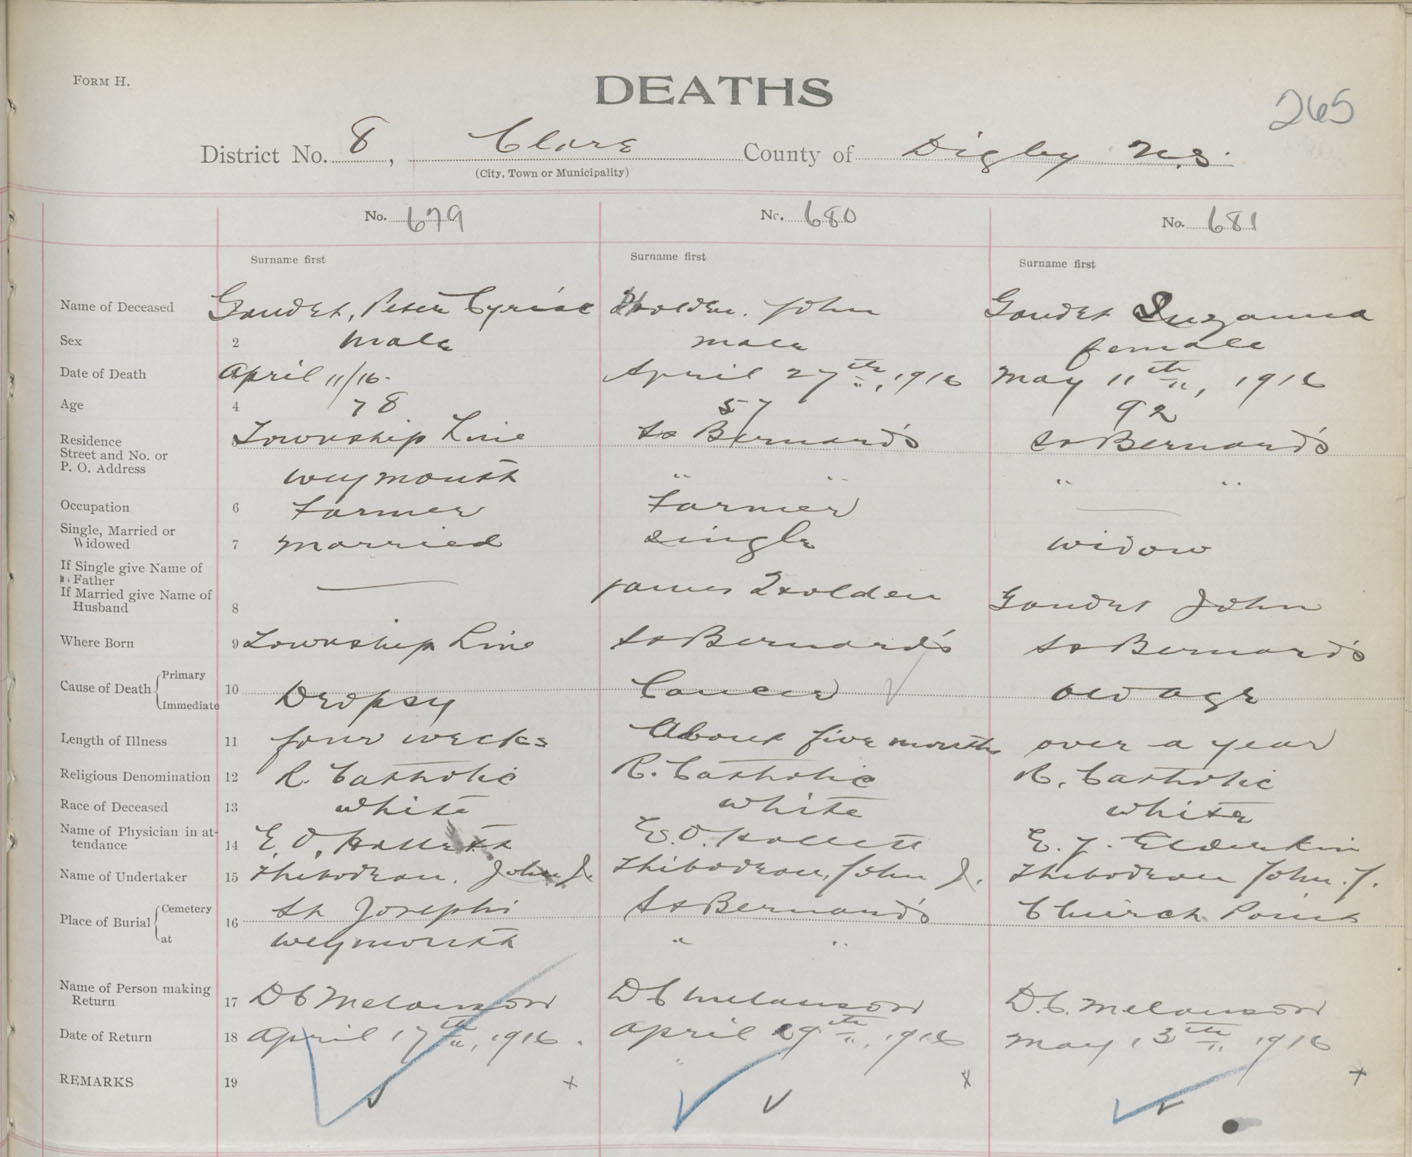 FORM H.
DEATHS
265
District No. 8, Clare County of Digby N.S.
(City, Town or Municipality)
No. 679 No. 680 No. 681
Surname first Surname first Surname first
Name of Deceased Gaudet, Peter Cyriac Holden, John Gaudet Suzanna
Sex 2 male male female
Date of Death April 11/16. April 27th, 1916 May 11th, 1916
Age 4 78 57 92
Residence Township Line St Bernard's St Bernard's
Street and No. or
P. O. Address Weymouth " " " "
Occupation 6 Farmer Farmer —
Single, Married or
Widowed 7 married single widow
If Single give Name of
Father
If Married give Name of — James Holden Gaudet John
Husband 8
Where Born 9 Township Line St Bernard's St Bernard's
Primary
Cause of Death 10 Dropsy Cancer old age
Immediate
Length of Illness 11 four weeks About five months over a year
Religious Denomination 12 R. Catholic R. Catholic R. Catholic
Race of Deceased 13 white white white
Name of Physician in at-
tendance 14 E. O. Hallett E. O. Hallett E. J. Elderkin
Name of Undertaker 15 Thibodeau, John J. Thibodeau, John J. Thibodeau John J.
Cemetery St Joseph's St Bernard's Church Point
Place of Burial 16
at Weymouth " "
Name of Person making
Return 17 D C Melanson D C Melanson D. C. Melanson
Date of Return 18 April 17th, 1916. April 29th, 1916 May 13th 1916
REMARKS 19 x x x